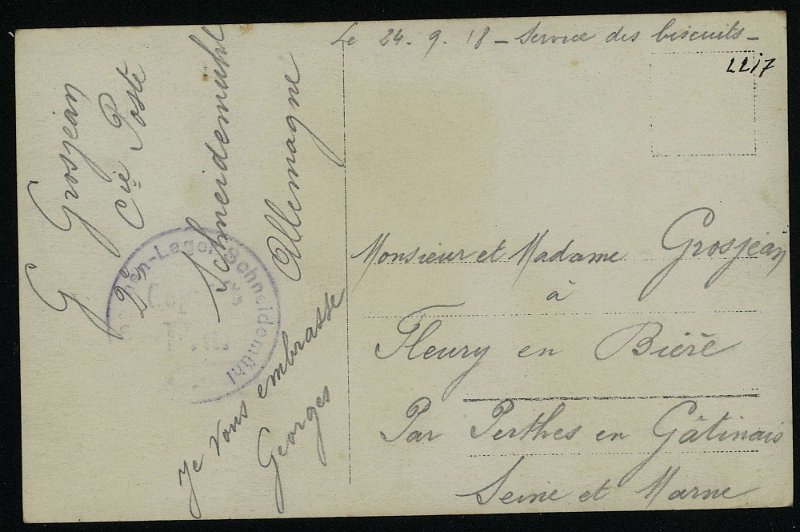 Le 24. 9. 18 - Service des biscuits -
2217
G Grosjean
2e Cie Poste
Schneidemühl
Allemagne
Je vous embrasse
Georges
Lager Schneidemühl
Monsieur et Madame Grosjean
à
Fleury en Bière
Par Perthes en Gâtinais
Seine et Marne